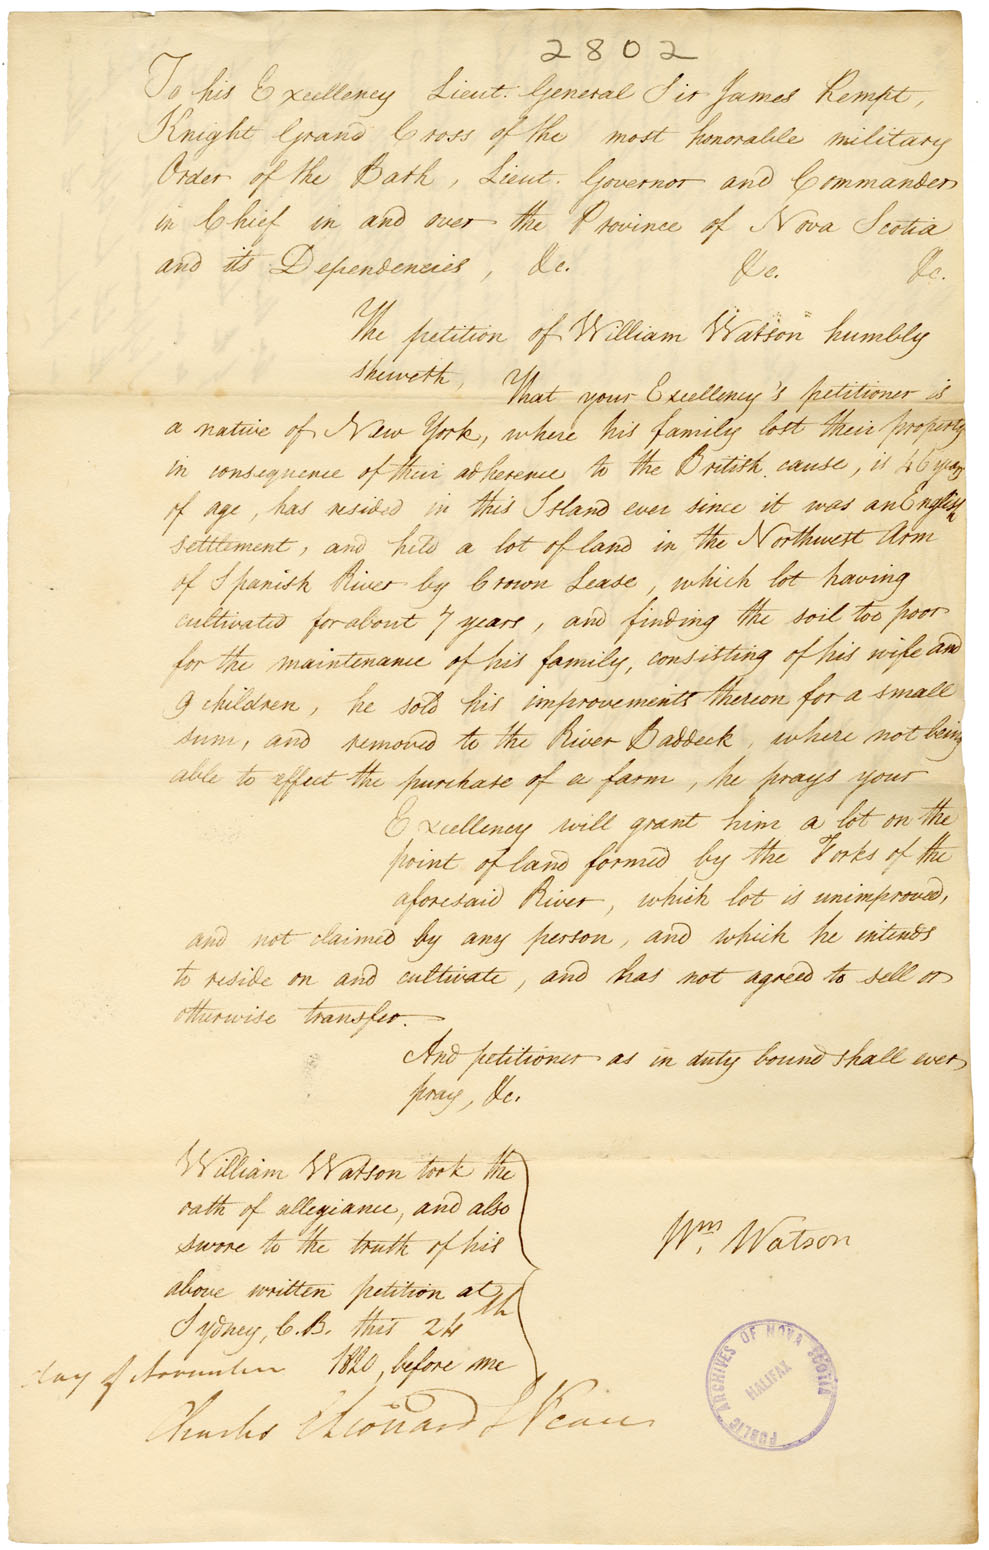 2802
To his Excellency Lieut. General Sir James Kempt,
Knight Grand Cross of the most honorable military
Order of the Bath, Lieut. Governor and Commander
in Chief in and over the Province of Nova Scotia
and its Dependencies, &c. &c. &c.
The petition of William Watson humbly
sheweth,
That your Excellency's petitioner is
a native of New York, where his family lost their property
in consequence of their adherence to the British cause, is 46 years
of age, has resided in this Island ever since it was an English
settlement, and held a lot of land in the Northwest Arm
of Spanish River by Crown Lease, which lot having
cultivated for about 7 years, and finding the soil too poor
for the maintenance of his family, consisting of his wife and
9 children, he sold his improvements thereon for a small
sum, and removed to the River Baddeck, where not being
able to effect the purchase of a farm, he prays your
Excellency will grant him a lot on the
point of land formed by the Forks of the
aforesaid River, which lot is unimproved,
and not claimed by any person, and which he intends
to reside on and cultivate, and has not agreed to sell or
otherwise transfer.
And petitioner as in duty bound shall ever
pray, &c.
William Watson took the
oath of allegiance, and also
swore to the truth of his
above written petition at
Sydney, C.B. this 24th
day of November 1820, before me
Wm. Watson
Charles Leonard
PUBLIC ARCHIVES OF NOVA SCOTIA
HALIFAX